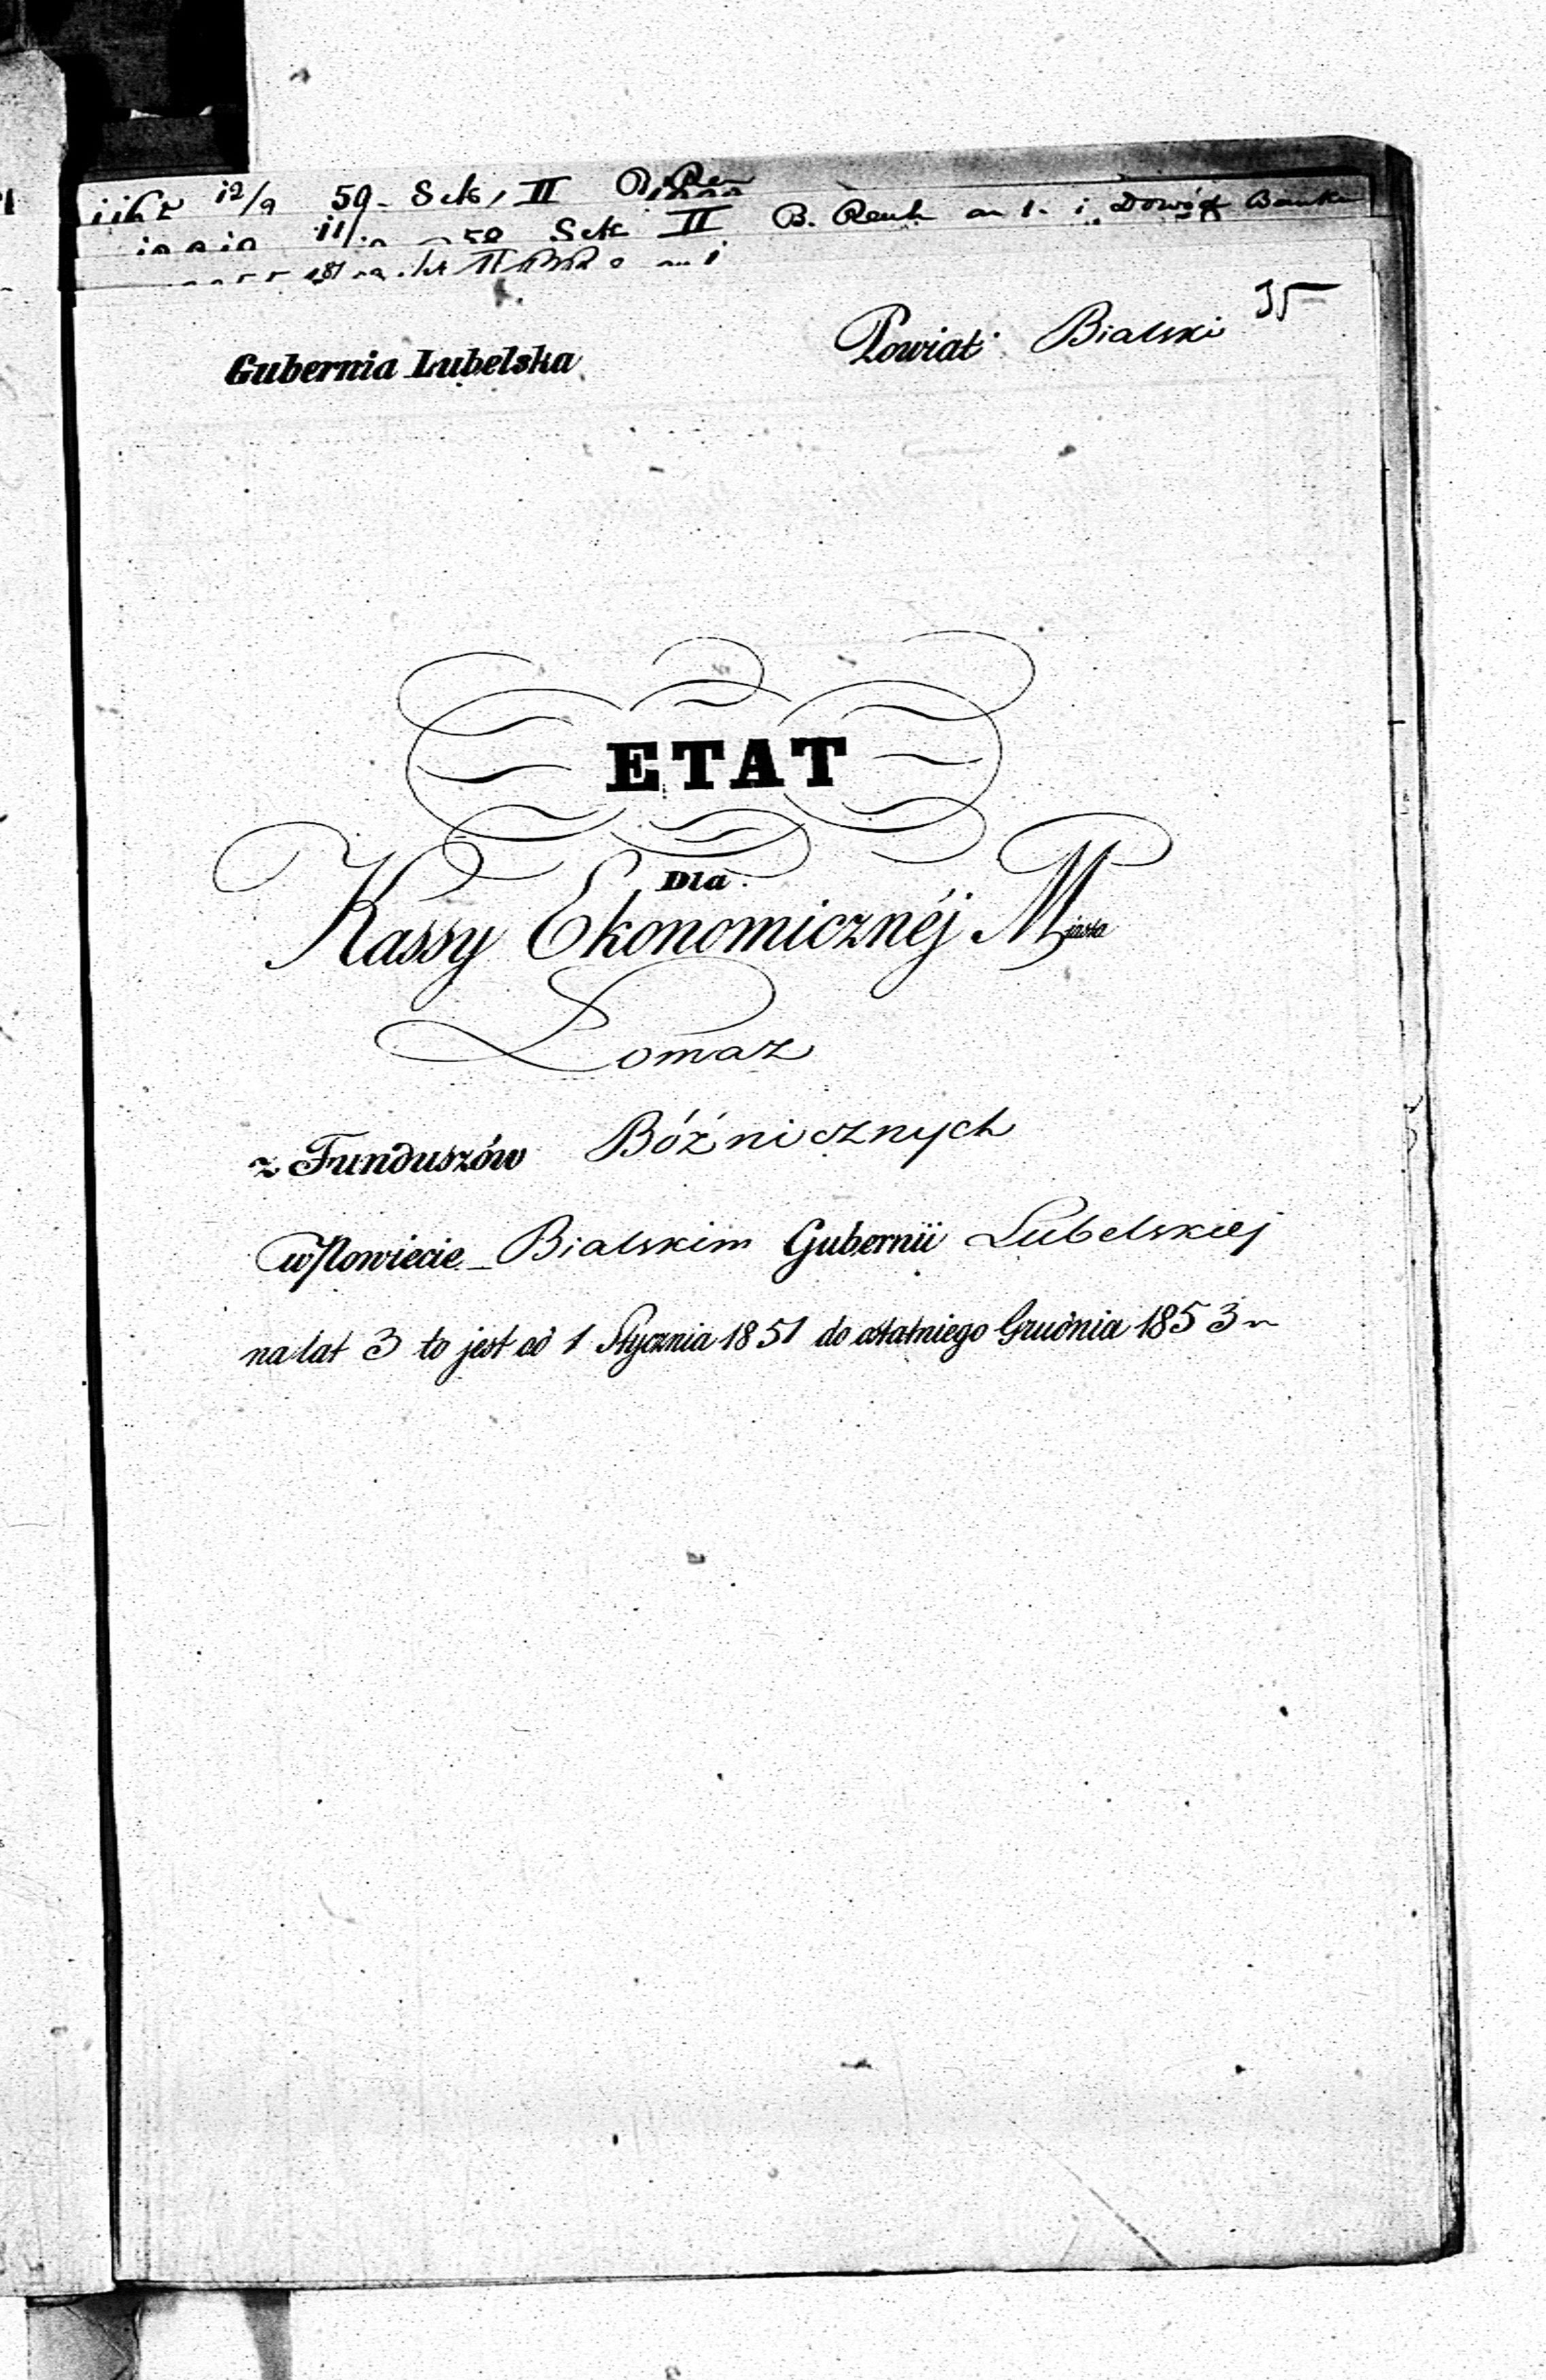 12/9 59. Sek, II
Sek II B. Reuk an 1. i Dowód Bank
35
Gubernia Lubelska Powiat Bialski
ETAT
Dla
Kassy Ekonomicznéj Miasta
Lomaz
z Funduszów Bóźnicznych
w Powiecie Bialskim Gubernii Lubelskiej
na lat 3 to jest od 1 Stycznia 1851 do ostatniego Grudnia 1853